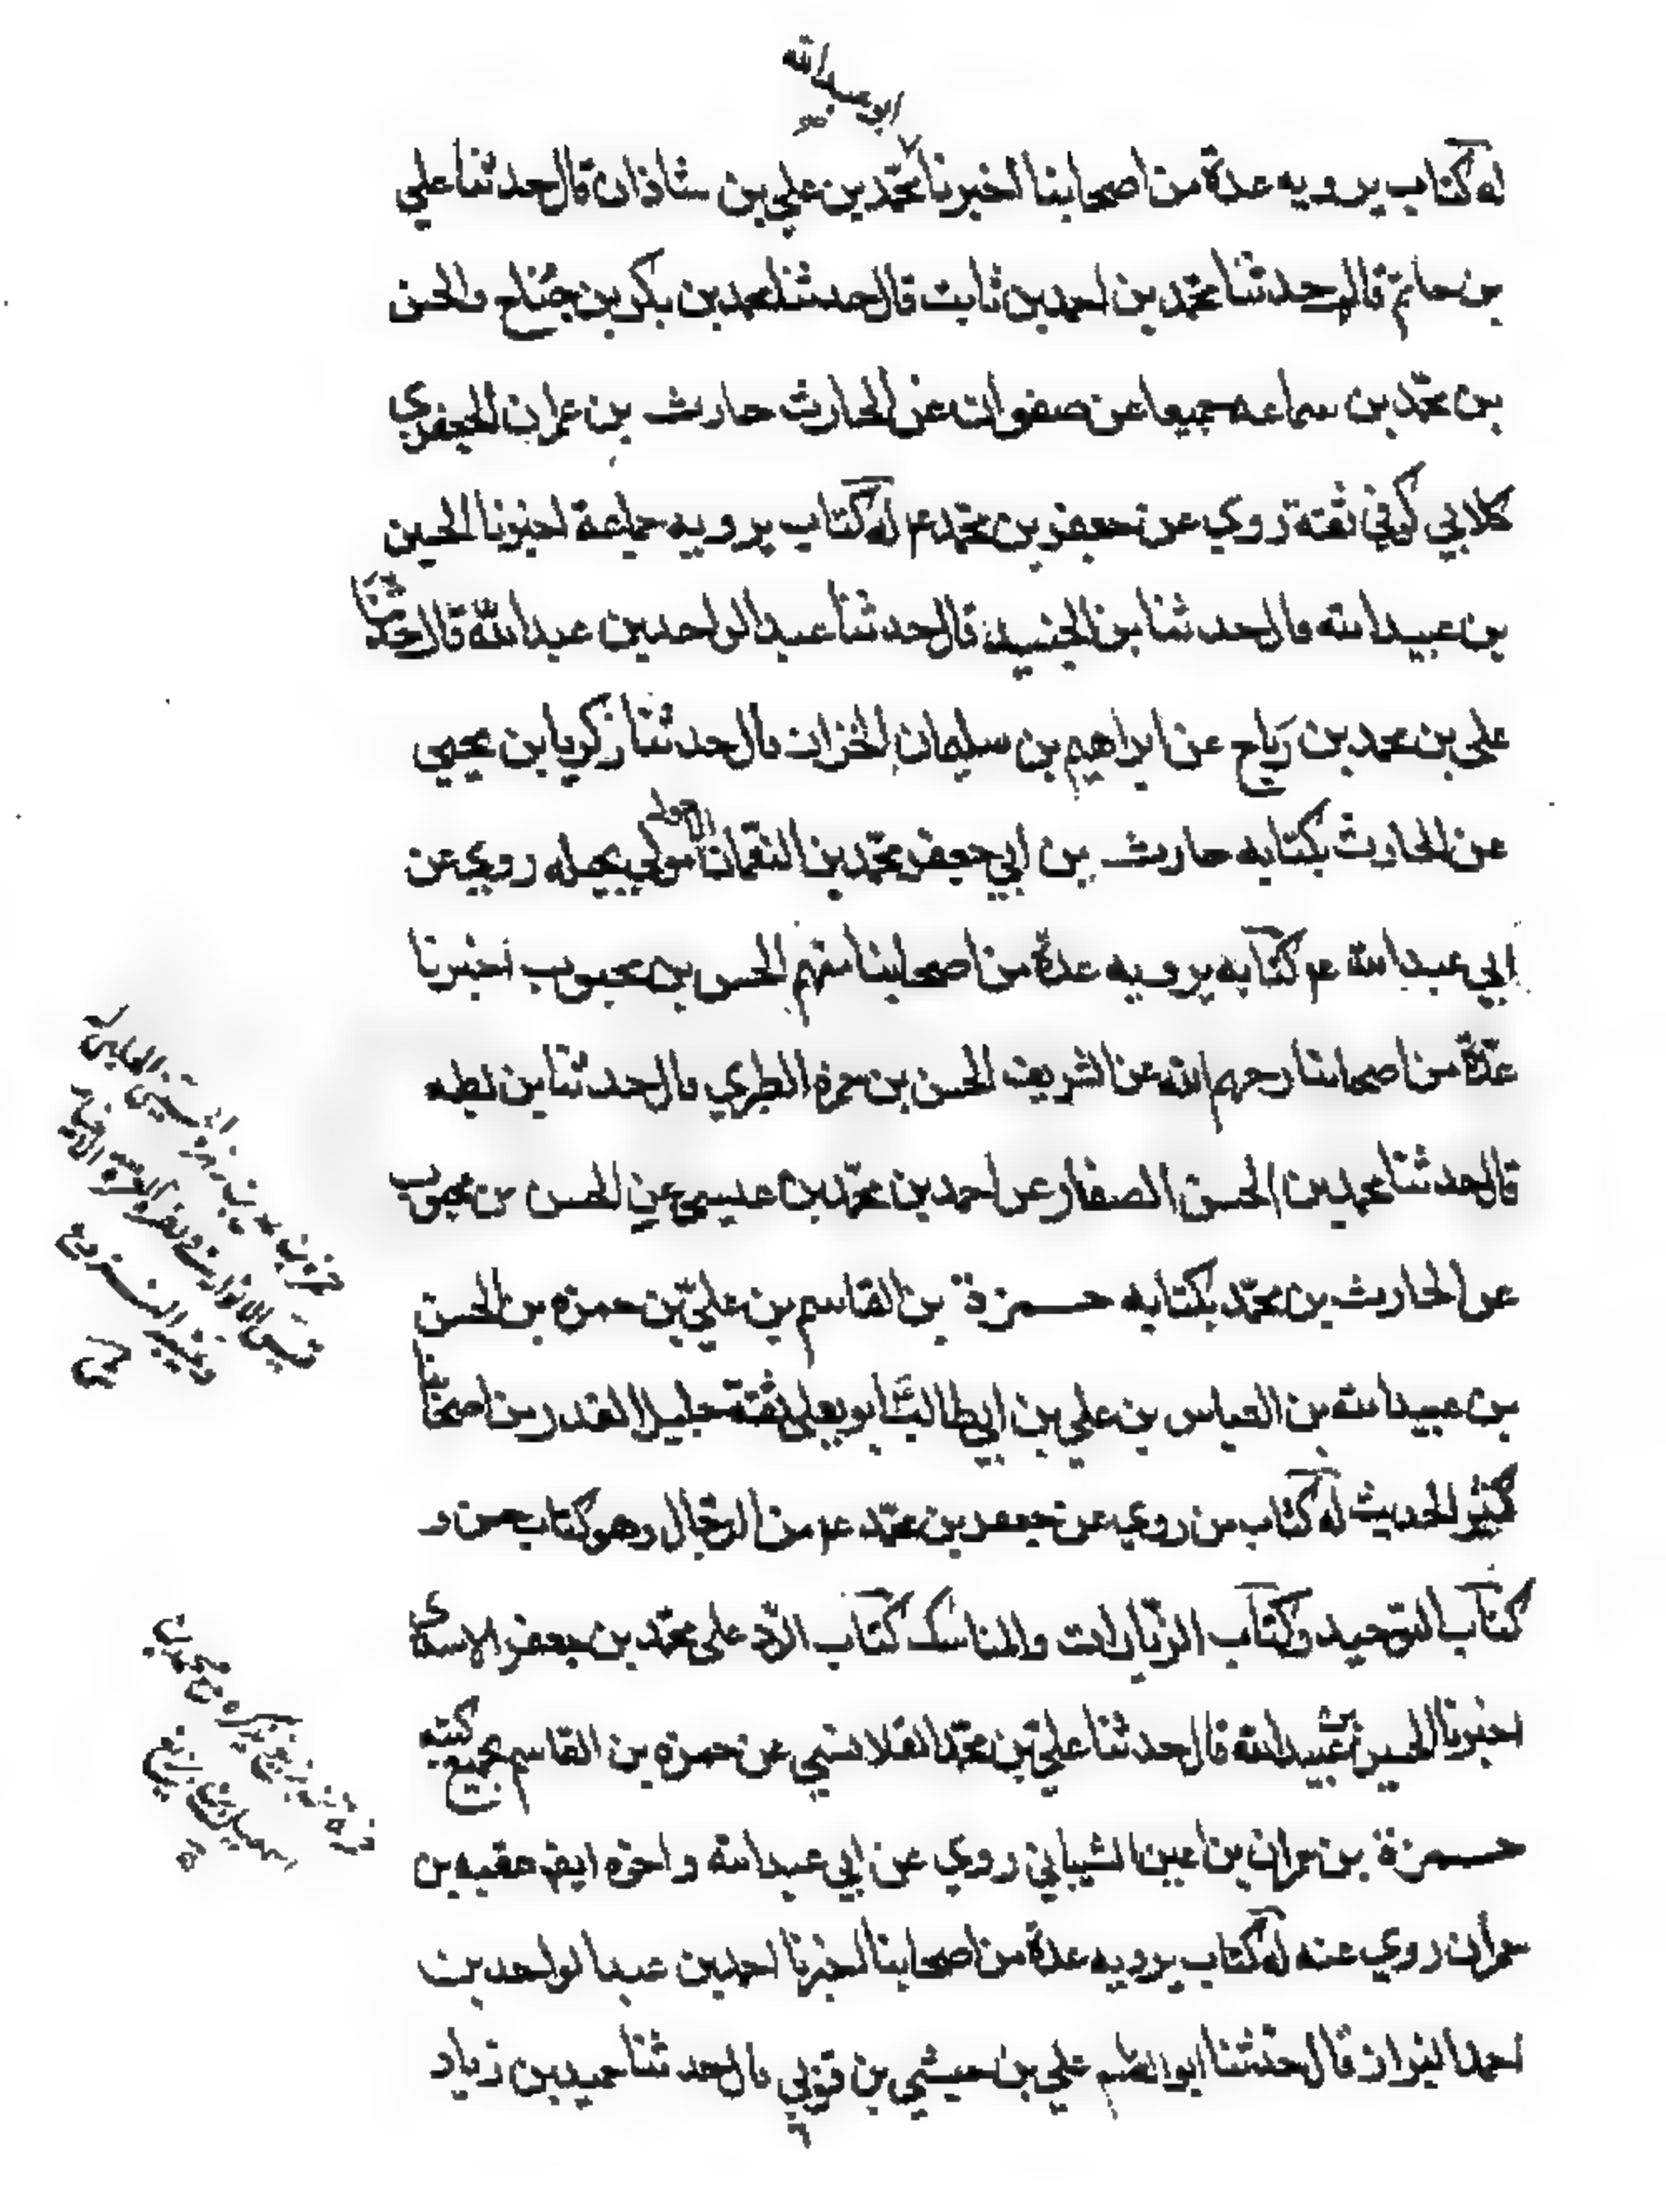 ابو عبدالله
له كتاب يرويه عدة من اصحابنا اخبرنا محمّد بن علي بن شاذان قال حدثنا علي
بن حاتم قال حدثنا محمّد بن احمد بن ثابت قال حدثنا محمد بن بكر بن جناح والحسن
بن محمّد بن سماعه جميعا عن صفوان عن الحارث حارث بن عمران الجعفري
كلابي كوفي ثقة روي عن جعفر بن محمّد عم له كتاب يرويه جماعة اخبرنا الحسين
بن عبيدالله قال حدثنا بن الجنيد قال حدثنا عبد الواحد بن عبدالله قال حدثنا
علي بن محمد بن رَباح عن ابراهيم بن سليمان الخزاز قال حدثنا زكريا بن يحيى
عن الحارث بكتابه حارث بن ابي جعفر محمّد بن النعمان الاحول مولي بجيله روي عن
ابي عبدالله عم كتابه يرويه عدّة من اصحابنا منهم الحسن بن محبوب اخبرنا
عدّة من اصحابنا رحمهم الله عن الشريف الحسن بن حمزه الطبري قال حدثنا بن بطه
قال حدثنا محمد بن الحسن الصفار عن احمد بن محمّد بن عيسي عن الحسن بن محبوب
عن الحارث بن محمّد بكتابه حمزة بن القاسم بن علي بن حمزه بن الحسن
بن عبيدالله بن العباس بن علي بن ابي طالب ابو يعلي ثقة جليل القدر من اصحابنا
كثير الحديث له كتاب من روي عن جعفر بن محمّد عم من الرجال وهو كتاب حسن و
كتاب التوحيد وكتاب الزيارات والمناسك كتاب الردّ على محمّد بن جعفر الاسدي
اخبرنا الحسين بن عبيدالله قال حدثنا علي بن محمّد القلانسي عن حمزه بن القاسم بجميع كتبه
حمزة بن حمران بن اعين الشيباني روي عن ابي عبدالله واخوه ايضا عقبه بن
حمران روي عنه له كتاب يرويه عدة من اصحابنا اخبرنا احمد بن عبد الواحد بن
احمد البزاز قال حدثنا ابو القاسم علي بن حبشي بن قوني قال حدثنا حميد بن زياد